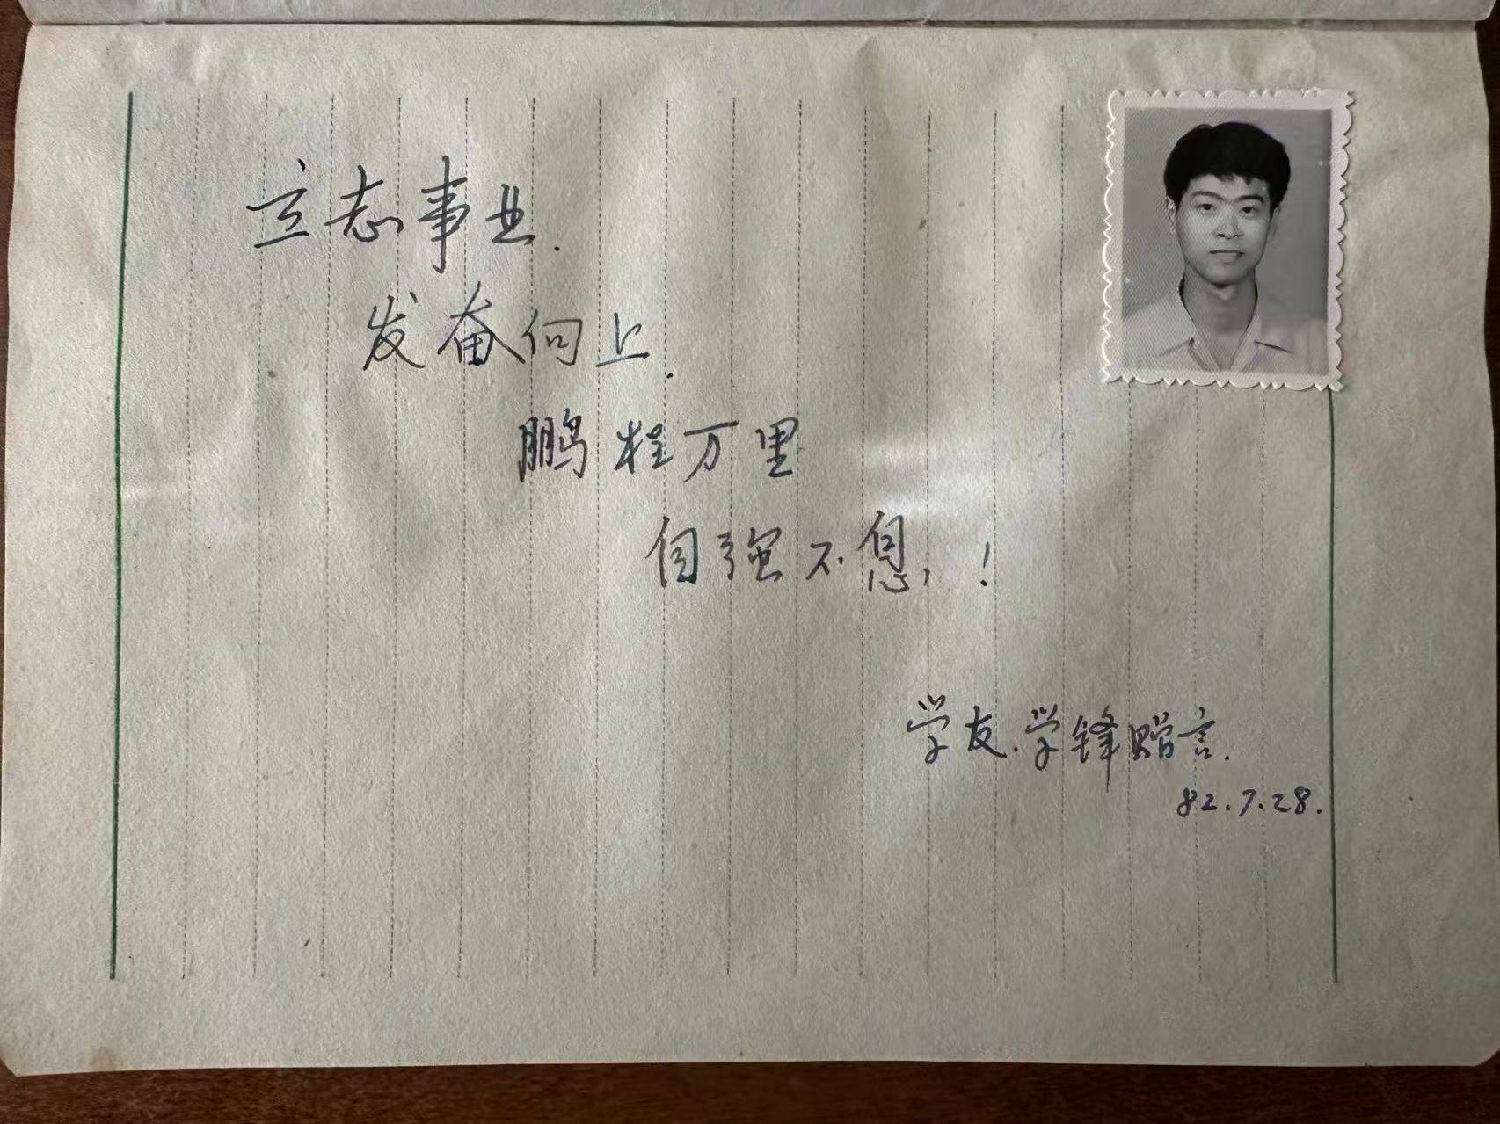 立志事业.
发奋向上.
鹏程万里
自强不息,!
学友.学锋赠言.
82.7.28.